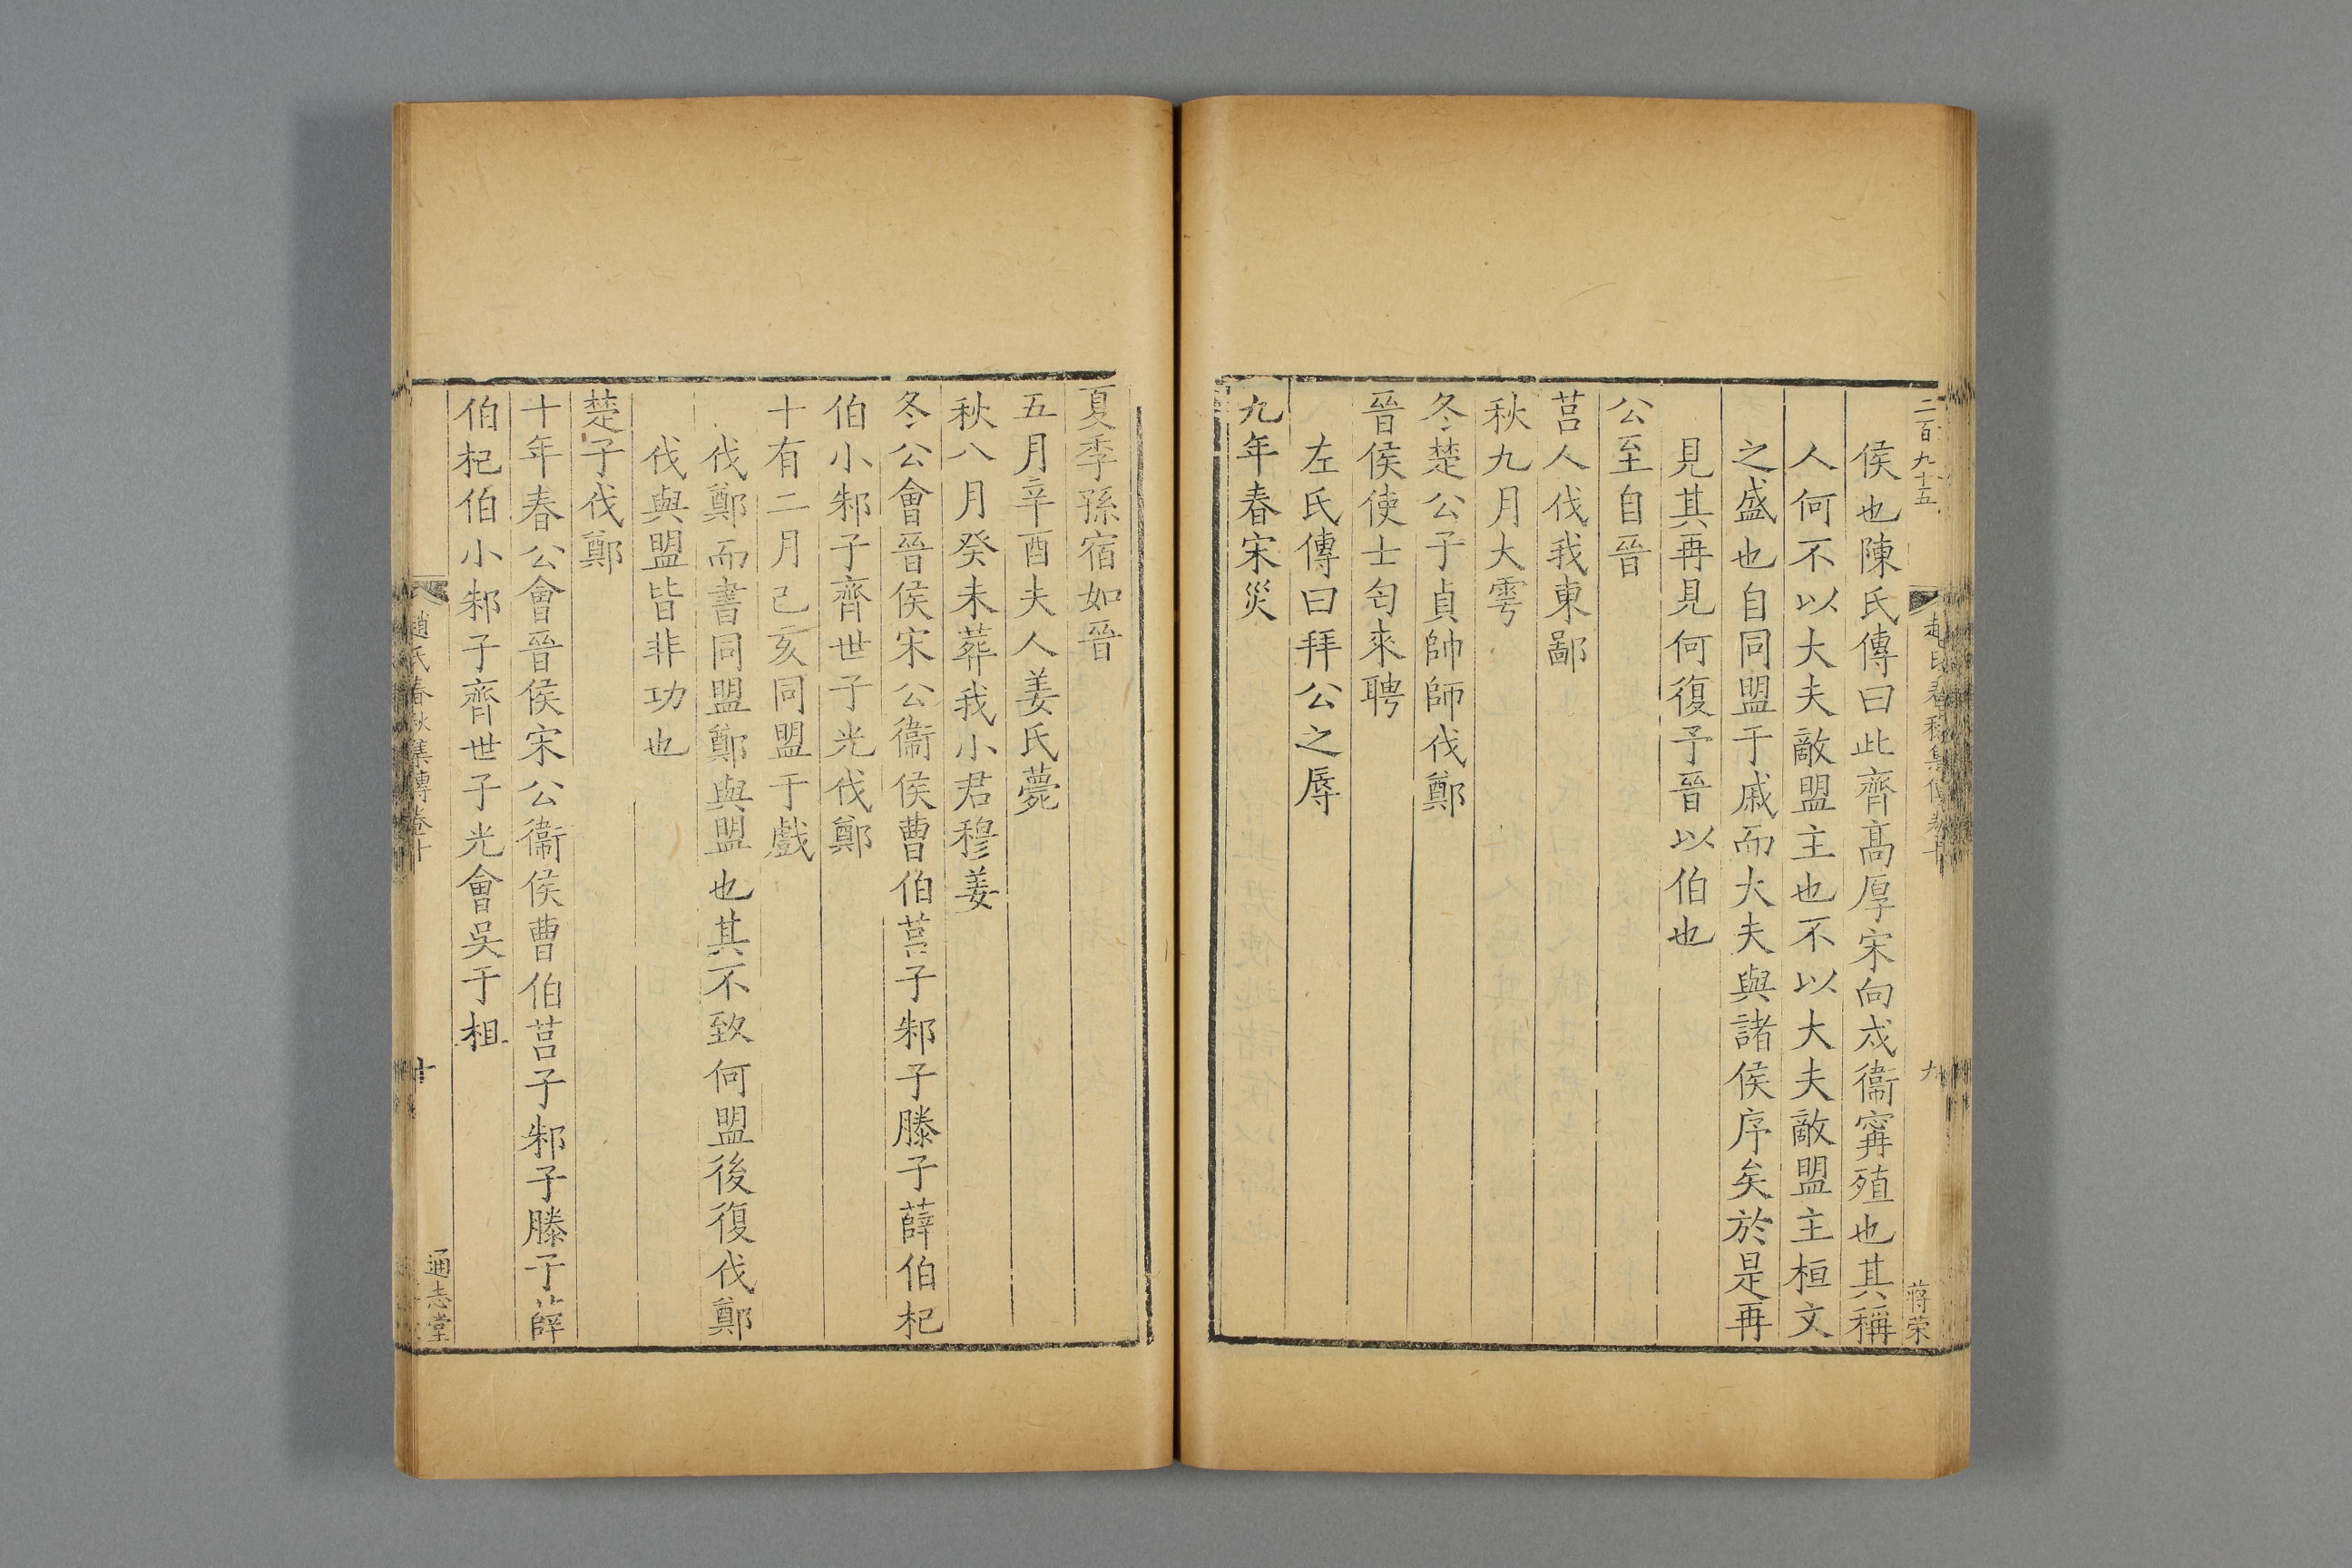 二百九十五
趙氏春秋集傳卷十
九
蔣荣
侯也陳氏傳曰此齊髙厚宋向戍衞甯殖也其稱
人何不以大夫敵盟主也不以大夫敵盟主桓文
之盛也自同盟于戚而大夫與諸侯序矣於是再
見其再見何復予晉以伯也
公至自晉
莒人伐我東鄙
秋九月大雩
冬楚公子貞帥師伐鄭
晉侯使士匄來聘
左氏傳曰拜公之辱
九年春宋災
夏季孫宿如晉
五月辛酉夫人姜氏薨
秋八月癸未葬我小君穆姜
冬公會晉侯宋公衞侯曹伯莒子邾子滕子薛伯杞
伯小邾子齊世子光伐鄭
十有二月己亥同盟于戲
伐鄭而書同盟鄭與盟也其不致何盟後復伐鄭
伐與盟皆非功也
楚子伐鄭
十年春公會晉侯宋公衞侯曹伯莒子邾子滕子薛
伯杞伯小邾子齊世子光會吳于柤
趙氏春秋集傳卷十
十
通志堂